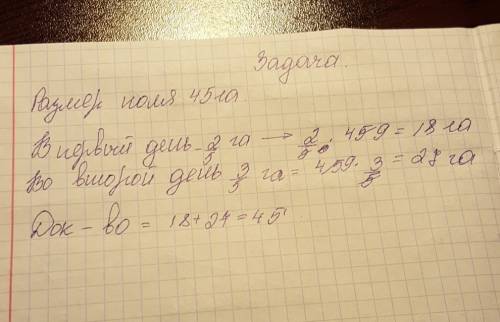 Задача.
Размер поля 45 га
В первый день - 2/5 га → 2/5 · 45 9 = 18 га
Во второй день 3/5 га = 45 9 · 3/5 = 27 га
Док - во = 18 + 27 = 45